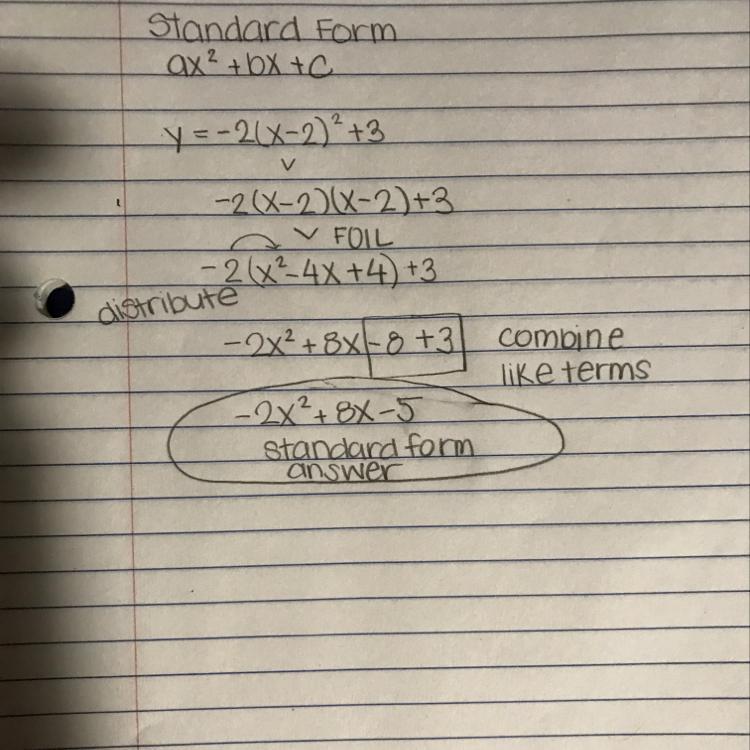 Standard Form
ax² + bx + c
y = -2(x-2)² + 3
-2(x-2)(x-2)+3
FOIL
-2(x²-4x+4)+3
distribute
-2x² + 8x -8 +3 combine
like terms
-2x² + 8x - 5
standard form
answer